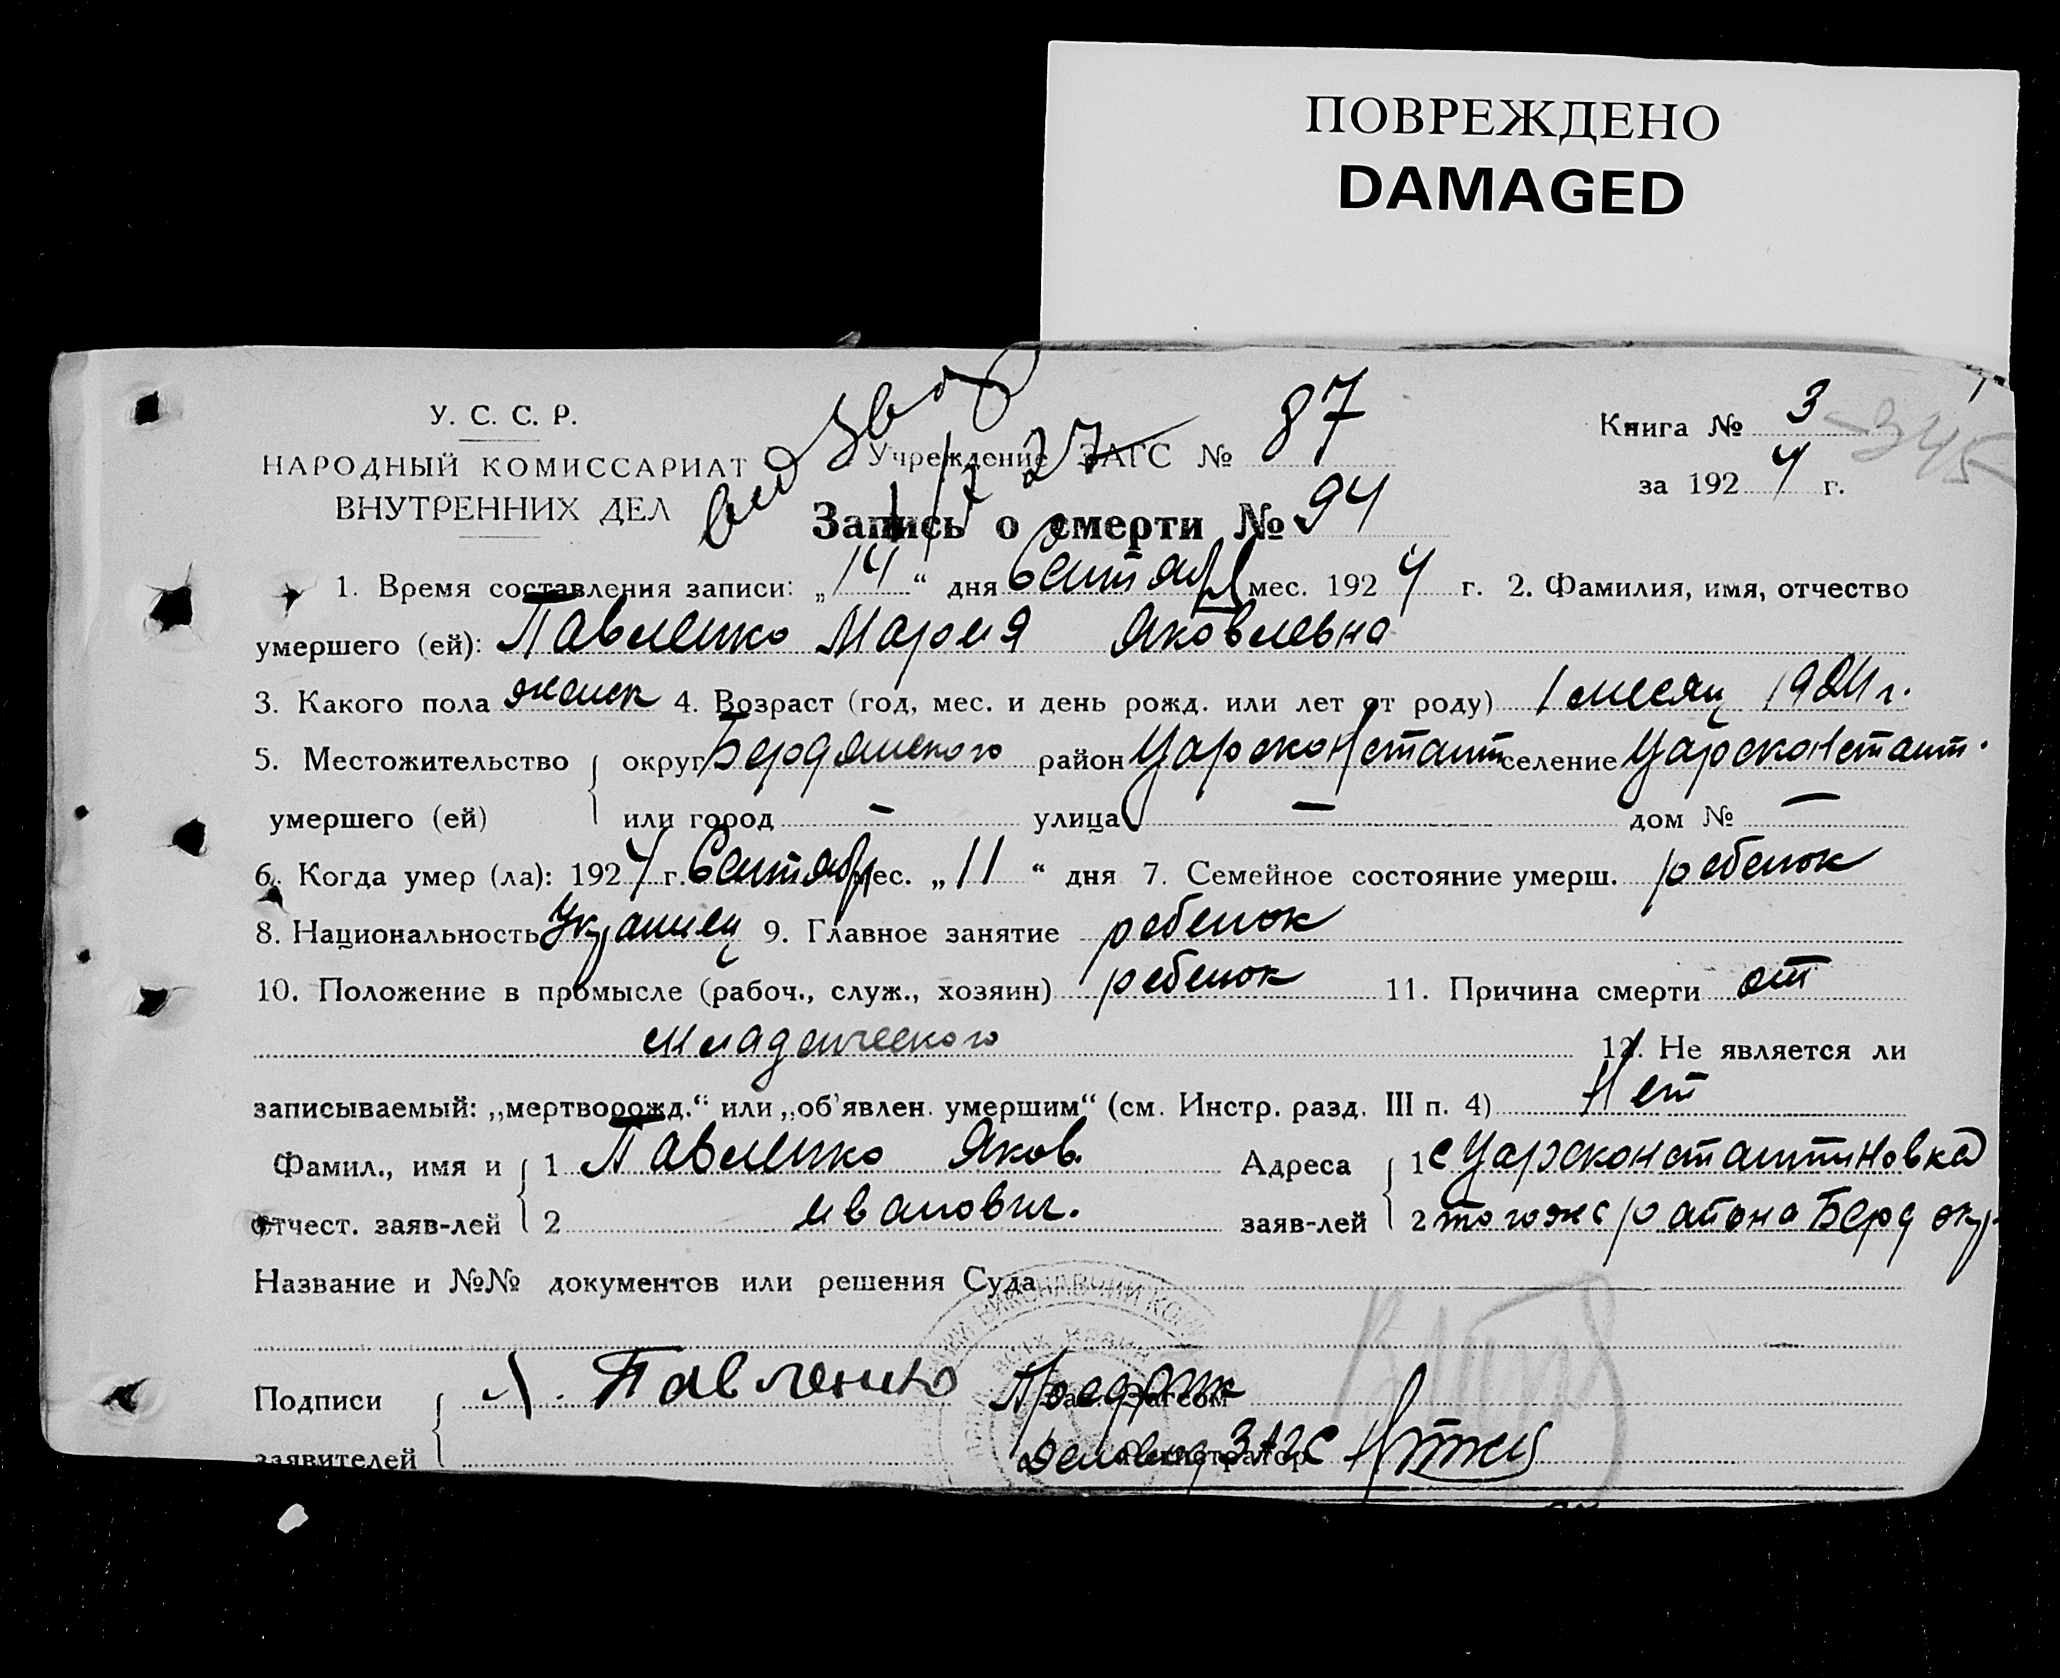 ПОВРЕЖДЕНО
DAMAGED
У. С. С. Р.
НАРОДНЫЙ КОМИССАРИАТ
ВНУТРЕННИХ ДЕЛ
Учреждение ЗАГС № 87
Книга № 3
345
за 1924 г.
27
Запись о смерти № 94
1. Время составления записи: „14“ дня Сентября мес. 1924 г. 2. Фамилия, имя, отчество
умершего (ей): Павленко Мария Яковлевна
3. Какого пола женск 4. Возраст (год, мес. и день рожд. или лет от роду) 1 месяц 1924 г.
5. Местожительство округ Бердянского район Царсконстант селение Царсконстант.
умершего (ей) или город — улица — дом № —
6. Когда умер (ла): 1924 г. Сентябр мес. „11“ дня 7. Семейное состояние умерш. ребенок
8. Национальность Украинец 9. Главное занятие ребенок
10. Положение в промысле (рабоч., служ., хозяин) ребенок 11. Причина смерти от
младенческого 12. Не является ли
записываемый: „мертворожд.“ или „об'явлен. умершим“ (см. Инстр. разд. III п. 4) Нет
Фамил., имя и 1 Павленко Яков. Адреса 1 с Царсконстантиновка
отчест. заяв-лей 2 иванович. заяв-лей 2 тогоже района Берд окр.
Название и №№ документов или решения Суда
Подписи Я. Павленко Загсом
заявителей Деловод ЗАГС